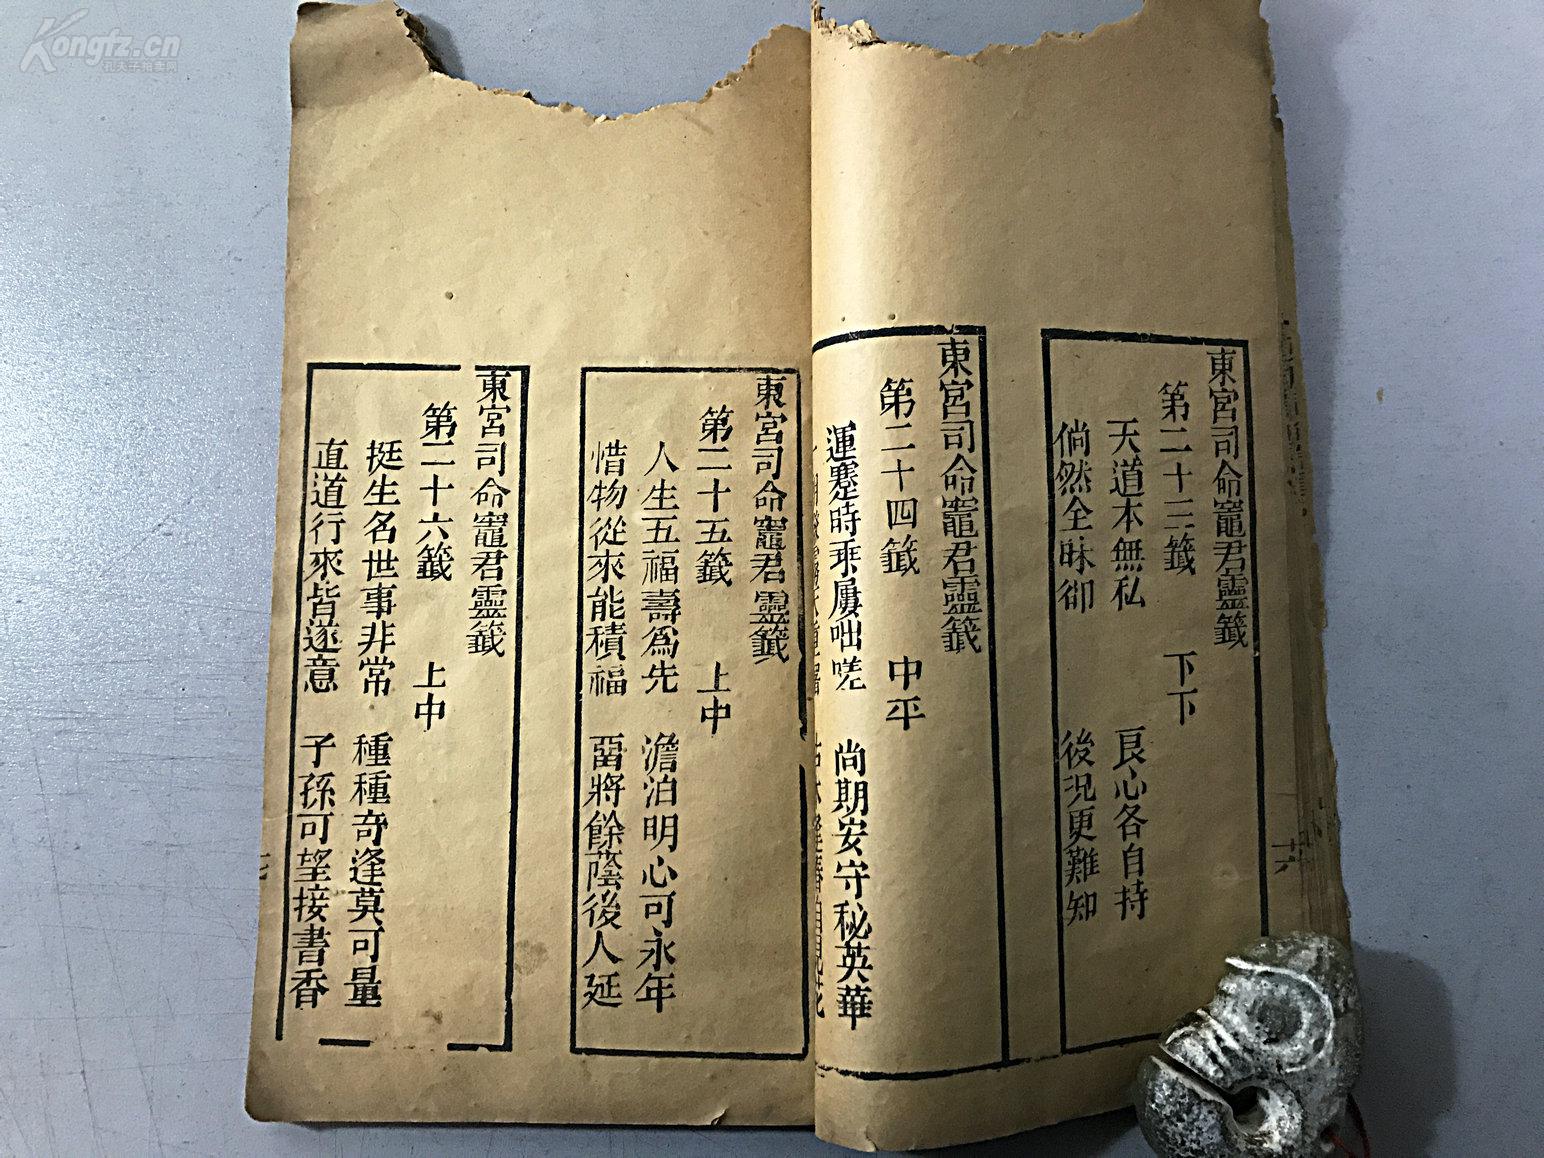 東宮司命竈君靈籤
第二十三籤 下下
天道本無私 良心各自持
倘然全昧卻 後況更難知
東宮司命竈君靈籤
第二十四籤 中平
運蹇時乖屢咄嗟 尚期安守秘英華
東宮司命竈君靈籤
第二十五籤 上中
人生五福壽為先 澹泊明心可永年
惜物從來能積福 畱將餘蔭後人延
東宮司命竈君靈籤
第二十六籤 上中
挺生名世事非常 種種奇逢莫可量
直道行來皆遂意 子孫可望接書香
十六
Kongfz.cn